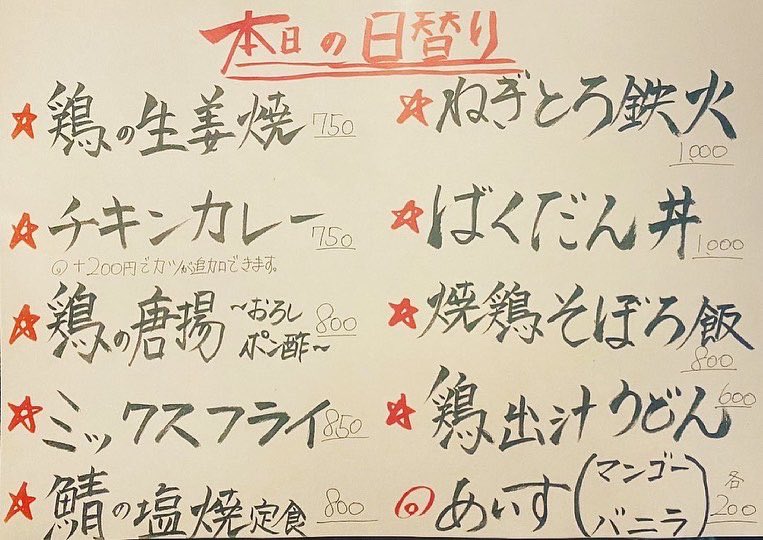 本日の日替り
☆鶏の生姜焼 750
☆チキンカレー 750
◎+200円でカツが追加できます。
☆鶏の唐揚 ~おろしポン酢~ 800
☆ミックスフライ 850
☆鯖の塩焼定食 800
☆ねぎとろ鉄火 1,000
☆ばくだん丼 1,000
☆焼鶏そぼろ飯 800
☆鶏出汁うどん 600
◎あいす(マンゴー バニラ) 各200